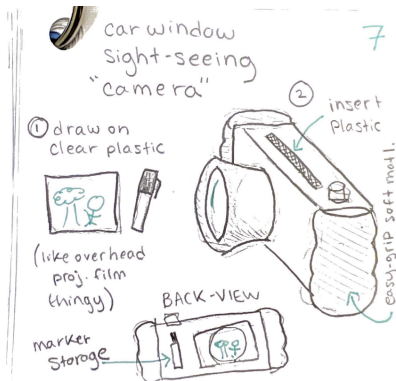 car window
sight-seeing
"camera"
7
① draw on
clear plastic
(like overhead
proj. film
thingy)
② insert
plastic
easy-grip soft matl.
BACK-VIEW
marker
storage